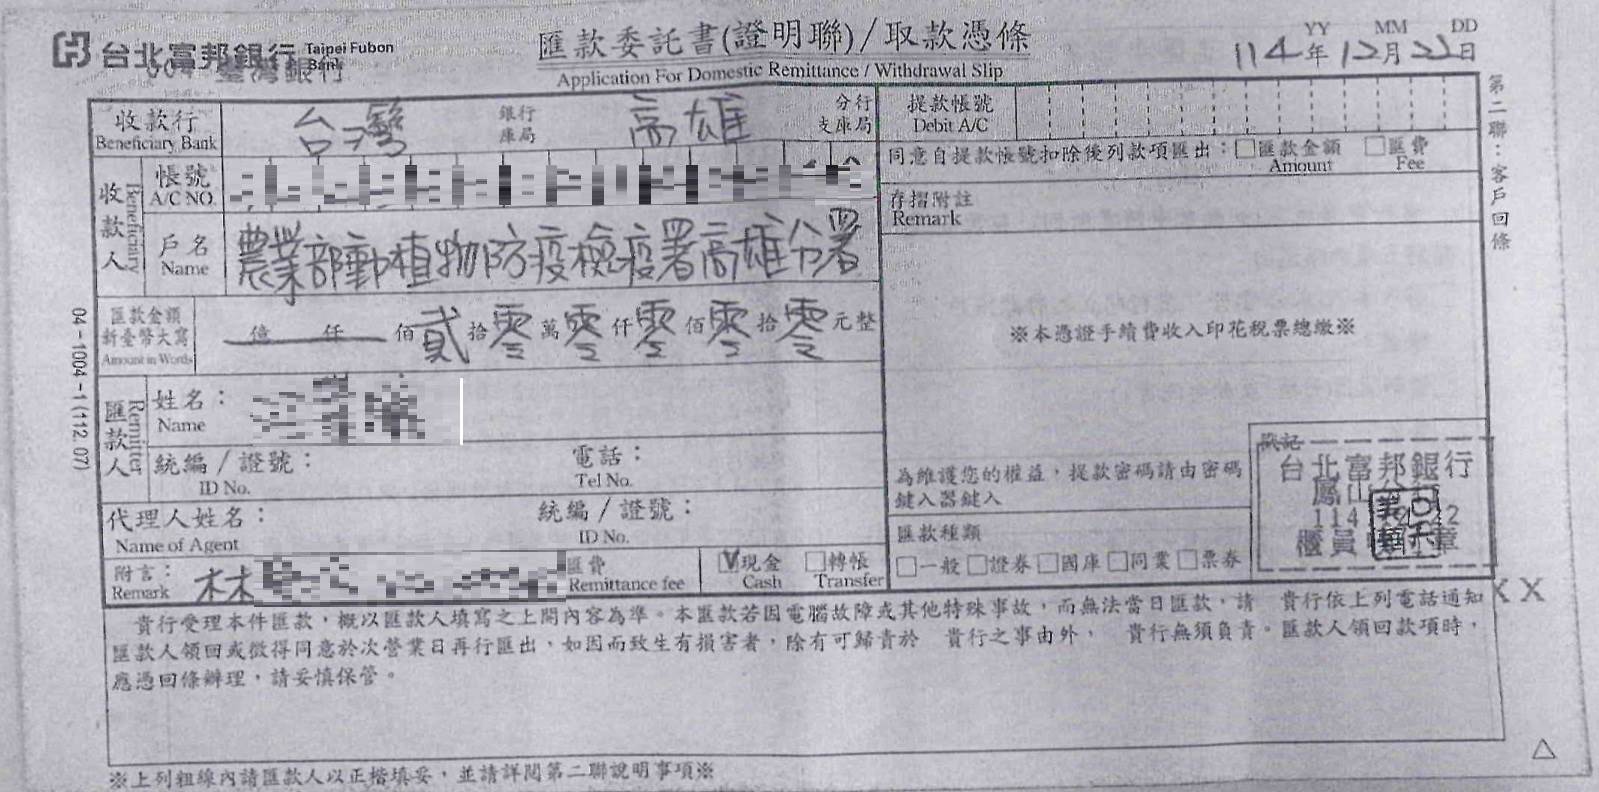 台北富邦銀行 Taipei Fubon Bank
004 臺灣銀行
匯款委託書(證明聯)/取款憑條
Application For Domestic Remittance / Withdrawal Slip
YY MM DD
114年12月22日
收款行 台灣 銀行 高雄 分行
Beneficiary Bank 庫局 支庫局
提款帳號
Debit A/C
同意自提款帳號扣除後列款項匯出：□匯款金額 □匯費
Amount Fee
收款人 Beneficiary
帳號
A/C NO.
戶名
Name
農業部動植物防疫檢疫署高雄分署
存摺附註
Remark
匯款金額
新臺幣大寫
Amount in Words
億 仟 佰 貳 拾 零 萬 零 仟 零 佰 零 拾 零 元整
※本憑證手續費收入印花稅票總繳※
匯款人 Remitter
姓名：
Name
統編/證號：
ID No.
電話：
Tel No.
代理人姓名：
Name of Agent
統編/證號：
ID No.
附言：
Remark
林
匯費
Remittance fee
V現金 □轉帳
Cash Transfer
為維護您的權益，提款密碼請由密碼
鍵入器鍵入
匯款種類
□一般□證券□國庫□同業□票券
台北富邦銀行
鳳山
114
櫃員 章
XX
貴行受理本件匯款，概以匯款人填寫之上開內容為準。本匯款若因電腦故障或其他特殊事故，而無法當日匯款，請 貴行依上列電話通知
匯款人領回或徵得同意於次營業日再行匯出，如因而致生有損害者，除有可歸責於 貴行之事由外， 貴行無須負責。匯款人領回款項時，
應憑回條辦理，請妥慎保管。
※上列粗線內請匯款人以正楷填妥，並請詳閱第二聯說明事項※
第二聯：客戶回條
04-1004-1 (112.07)